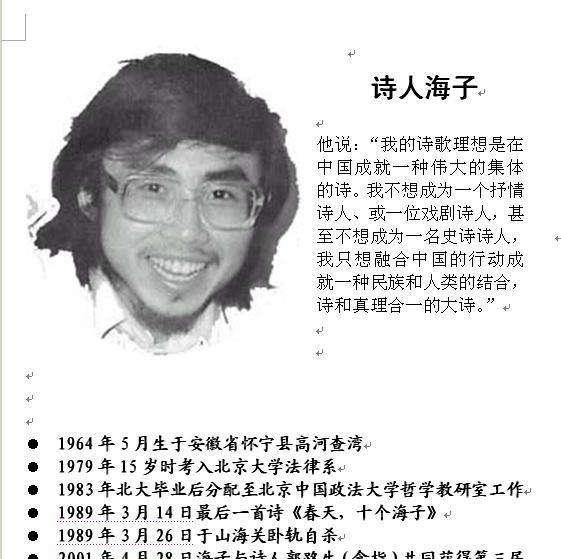 诗人海子
他说：“我的诗歌理想是在
中国成就一种伟大的集体
的诗。我不想成为一个抒情
诗人、或一位戏剧诗人，甚
至不想成为一名史诗诗人，
我只想融合中国的行动成
就一种民族和人类的结合，
诗和真理合一的大诗。”
● 1964 年 5 月生于安徽省怀宁县高河查湾
● 1979 年 15 岁时考入北京大学法律系
● 1983 年北大毕业后分配至北京中国政法大学哲学教研室工作
● 1989 年 3 月 14 日最后一首诗《春天，十个海子》
● 1989 年 3 月 26 日于山海关卧轨自杀
● 2001 年 4 月 28 日海子与诗人郭路生（食指）共同获得第三届